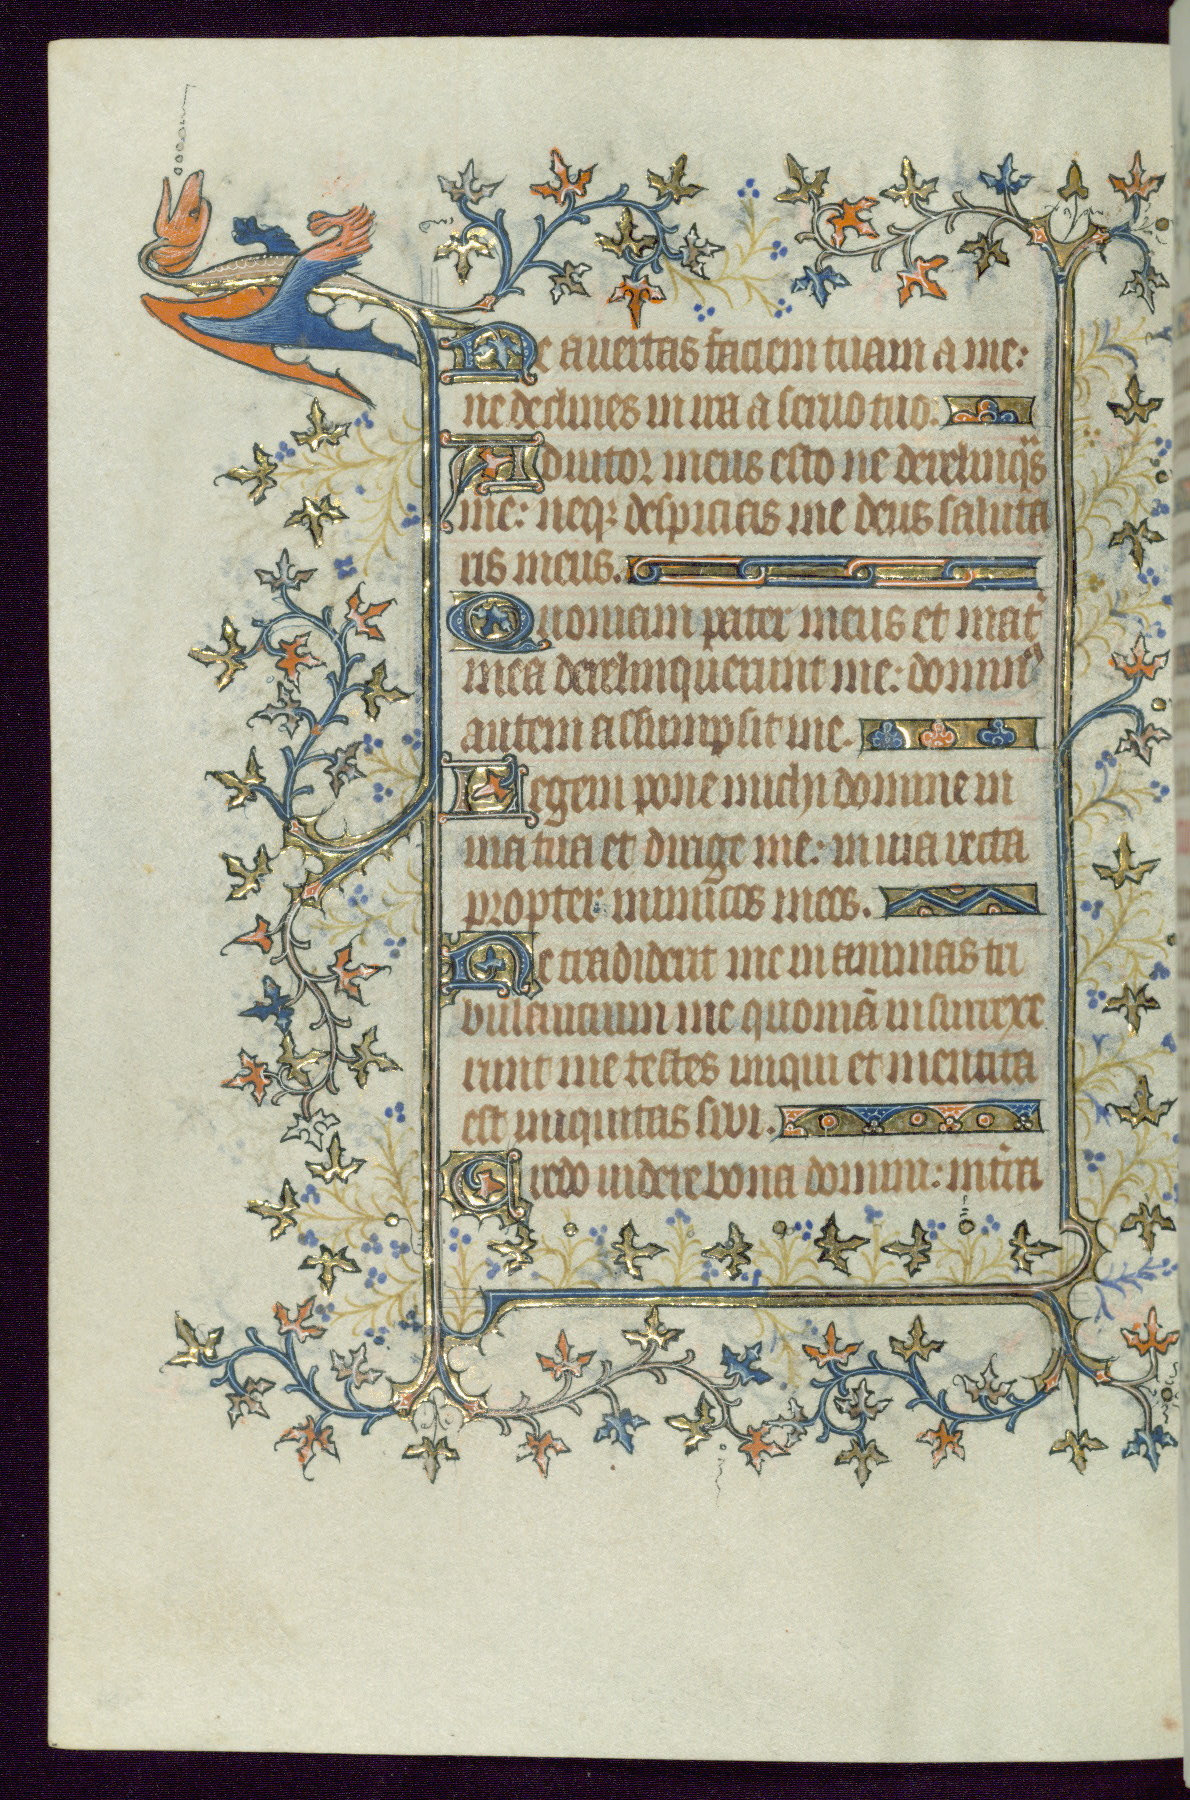 Ne auertas faciem tuam a me:
ne declines in ira a seruo tuo.
Adiutor meus esto ne derelinqͣs
me: neqꝫ despicias me deus saluta
ris meus.
Quoniam pater meus et mat᷑
mea derelinquerunt me: domin᷒
autem assumpsit me.
Legem pone michi domine in
uia tua et dirige me: in uia recta
propter inimicos meos.
Ne tradideris me in animas tri
bulantium me quoniā insurrexe
runt me testes iniqui et mentita
est iniquitas sibi.
Credo uidere bona domini: in t᷑ra